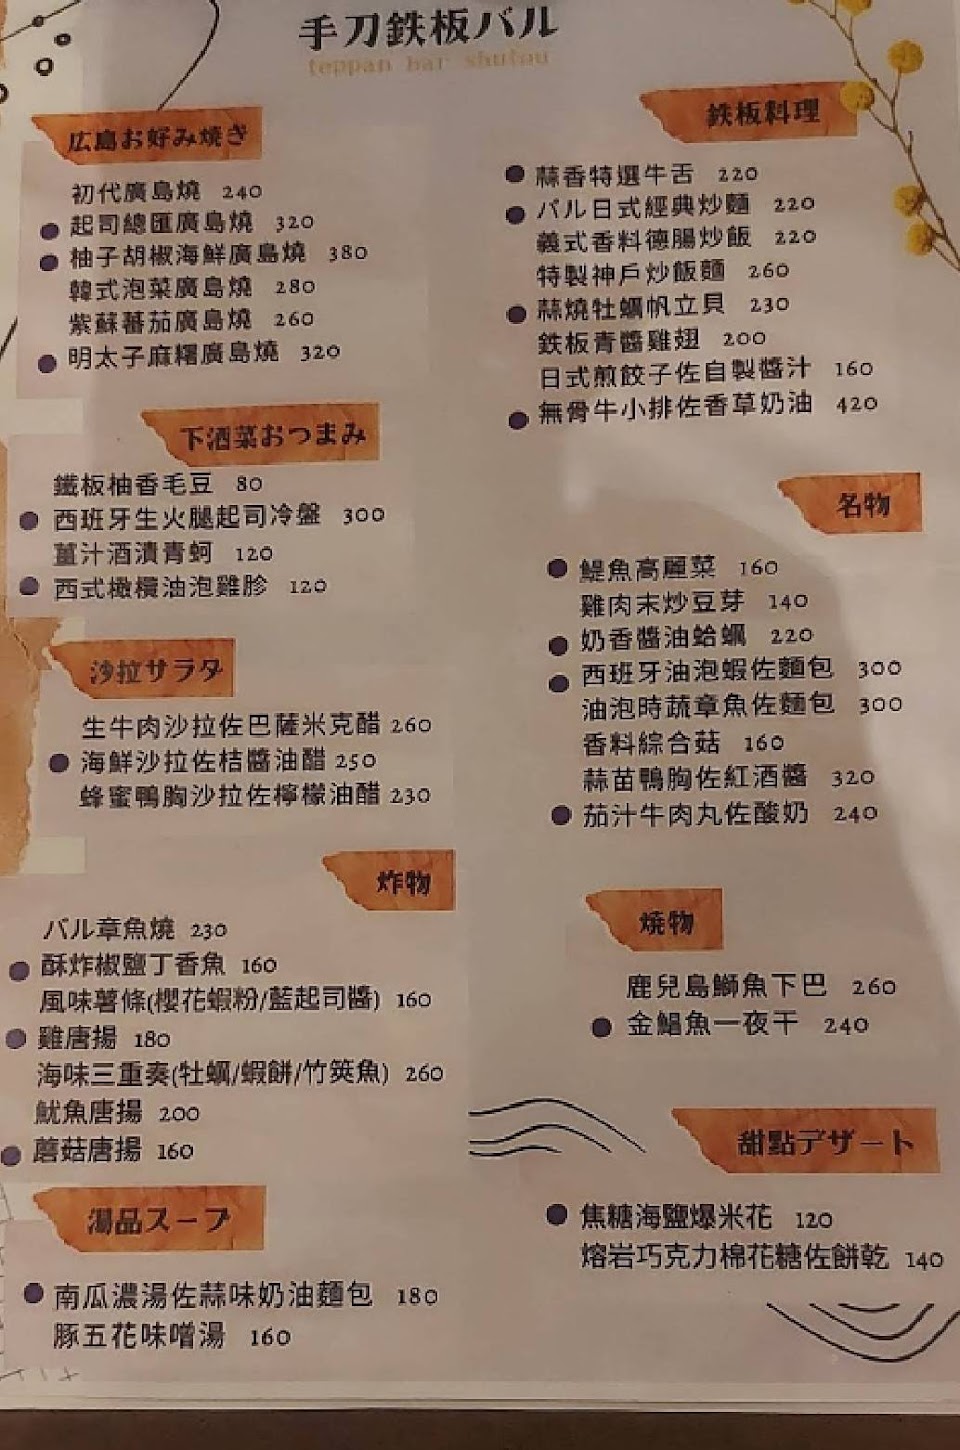 手刀鉄板バル
teppan bar shutou
広島お好み焼き
初代廣島燒 240
起司總匯廣島燒 320
柚子胡椒海鮮廣島燒 380
韓式泡菜廣島燒 280
紫蘇蕃茄廣島燒 260
明太子麻糬廣島燒 320
下酒菜おつまみ
鐵板柚香毛豆 80
西班牙生火腿起司冷盤 300
薑汁酒漬青蚵 120
西式橄欖油泡雞胗 120
沙拉サラダ
生牛肉沙拉佐巴薩米克醋 260
海鮮沙拉佐桔醬油醋 250
蜂蜜鴨胸沙拉佐檸檬油醋 230
炸物
バル章魚燒 230
酥炸椒鹽丁香魚 160
風味薯條(櫻花蝦粉/藍起司醬) 160
雞唐揚 180
海味三重奏(牡蠣/蝦餅/竹筴魚) 260
魷魚唐揚 200
蘑菇唐揚 160
湯品スープ
南瓜濃湯佐蒜味奶油麵包 180
豚五花味噌湯 160
鉄板料理
蒜香特選牛舌 220
バル日式經典炒麵 220
義式香料德腸炒飯 220
特製神戶炒飯麵 260
蒜燒牡蠣帆立貝 230
鉄板青醬雞翅 200
日式煎餃子佐自製醬汁 160
無骨牛小排佐香草奶油 420
名物
鯷魚高麗菜 160
雞肉末炒豆芽 140
奶香醬油蛤蠣 220
西班牙油泡蝦佐麵包 300
油泡時蔬章魚佐麵包 300
香料綜合菇 160
蒜苗鴨胸佐紅酒醬 320
茄汁牛肉丸佐酸奶 240
燒物
鹿兒島鰤魚下巴 260
金鯧魚一夜干 240
甜點デザート
焦糖海鹽爆米花 120
熔岩巧克力棉花糖佐餅乾 140